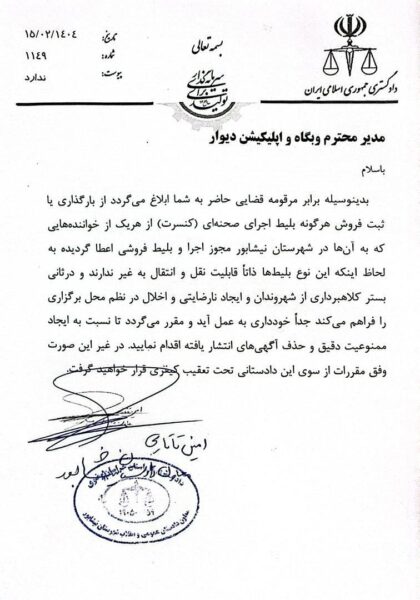 بسمه تعالی
تاریخ: ۱۵/۰۲/۱۴۰۴
شماره: ۱۱۴۹
پیوست: ندارد
دادگستری جمهوری اسلامی ایران
سرمایه‌گذاری برای تولید
مدیر محترم وبگاه و اپلیکیشن دیوار
باسلام
بدینوسیله برابر مرقومه قضایی حاضر به شما ابلاغ می‌گردد از بارگذاری یا
ثبت فروش هرگونه بلیط اجرای صحنه‌ای (کنسرت) از هریک از خواننده‌هایی
که به آن‌ها در شهرستان نیشابور مجوز اجرا و بلیط فروشی اعطا گردیده به
لحاظ اینکه این نوع بلیط‌ها ذاتاً قابلیت نقل و انتقال به غیر ندارند و درثانی
بستر کلاهبرداری از شهروندان و ایجاد نارضایتی و اخلال در نظم محل برگزاری
را فراهم می‌کند جداً خودداری به عمل آید و مقرر می‌گردد تا نسبت به ایجاد
ممنوعیت دقیق و حذف آگهی‌های انتشار یافته اقدام نمایید. در غیر این صورت
وفق مقررات از سوی این دادستانی تحت تعقیب کیفری قرار خواهید گرفت.
معاون دادستان عمومی و انقلاب شهرستان نیشابور